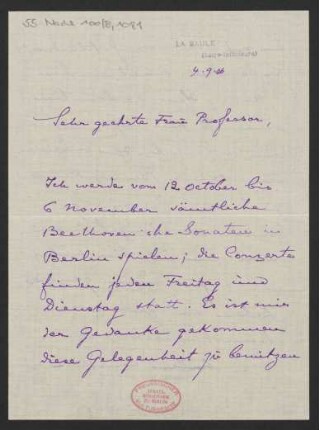 55 Nachl 100/B, 1081
4.9.26
Sehr geehrte Frau Professor,
Ich werde vom 12 October bis
6 November sämtliche
Beethoven'sche Sonaten in
Berlin spielen; die Conzerte
finden jeden Freitag und
Dienstag statt. Es ist mir
der Gedanke gekommen
diese Gelegenheit zu benützen